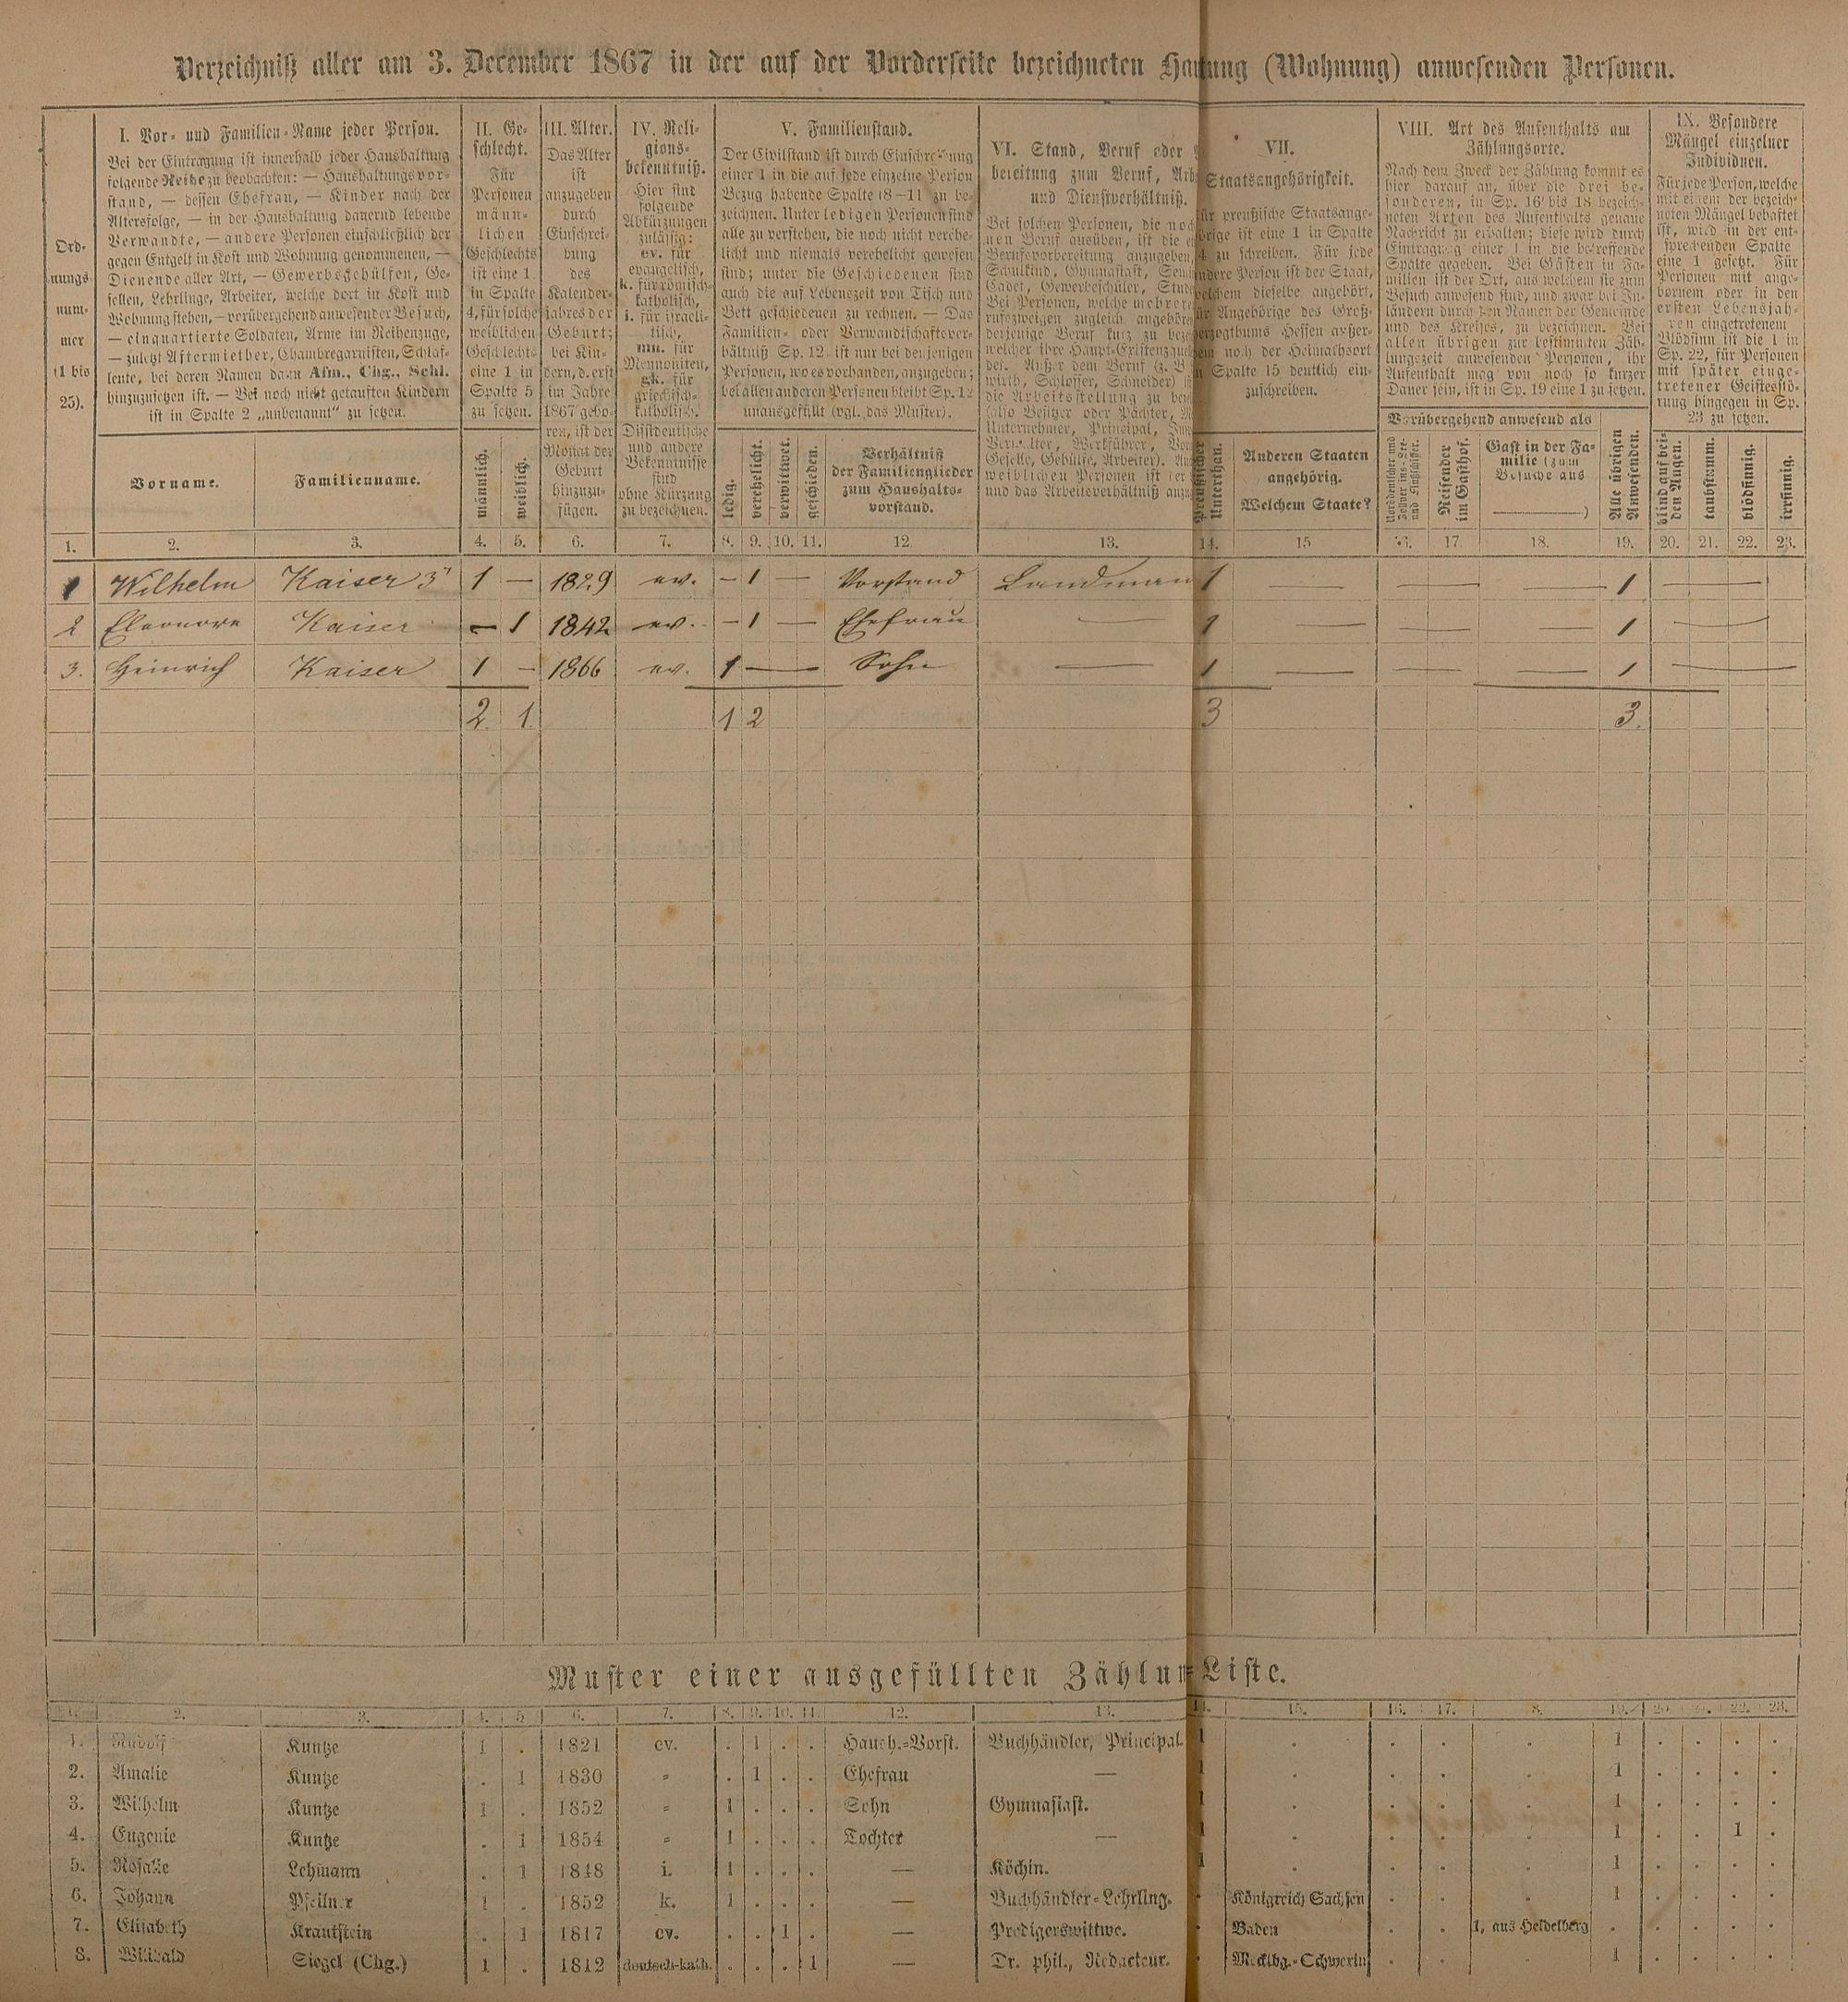 Verzeichniß aller am 3. December 1867 in der auf der Vorderseite bezeichneten Hausung (Wohnung) anwesenden Personen.
Ord-
nungs-
num-
mer
(1 bis
25).
I. Vor- und Familien-Name jeder Person.
Bei der Eintragung ist innerhalb jeder Haushaltung
folgende Reihe zu beobachten: — Haushaltungsvor-
stand, — dessen Ehefrau, — Kinder nach der
Altersfolge, — in der Haushaltung dauernd lebende
Verwandte, — andere Personen einschließlich der
gegen Entgelt in Kost und Wohnung genommenen, —
Dienende aller Art, — Gewerbsgehülfen, Ge-
sellen, Lehrlinge, Arbeiter, welche dort in Kost und
Wohnung stehen, — vorübergehend anwesender Besuch,
— einquartierte Soldaten, Arme im Reihenzuge,
— zuletzt Aftermiether, Chambregarnisten, Schlaf-
leute, bei deren Namen dann Afm., Chg., Schl.
hinzuzusetzen ist. — Bei noch nicht getauften Kindern
ist in Spalte 2 „unbenannt“ zu setzen.
Vorname.
Familienname.
II. Ge-
schlecht.
Für
Personen
männ-
lichen
Geschlechts
ist eine 1
in Spalte
4, für solche
weiblichen
Geschlechts
eine 1 in
Spalte 5
zu setzen.
männlich.
weiblich.
III. Alter.
Das Alter
ist
anzugeben
durch
Einschrei-
bung
des
Kalender-
jahres der
Geburt;
bei Kin-
dern, d. erst
im Jahre
1867 gebo-
ren, ist der
Monat der
Geburt
hinzuzu-
fügen.
IV. Reli-
gions-
bekenntniß.
Hier sind
folgende
Abkürzungen
zulässig:
ev. für
evangelisch,
k. für römisch-
katholisch,
i. für israeli-
tisch,
mn. für
Mennoniten,
gk. für
griechisch-
katholisch.
Dissidentische
und andere
Bekenntnisse
sind
ohne Kürzung
zu bezeichnen.
V. Familienstand.
Der Civilstand ist durch Einschreibung
einer 1 in die auf jede einzelne Person
Bezug habende Spalte (8—11) zu be-
zeichnen. Unter ledigen Personen sind
alle zu verstehen, die noch nicht verehe-
licht und niemals verehelicht gewesen
sind; unter die Geschiedenen sind
auch die auf Lebenszeit von Tisch und
Bett geschiedenen zu rechnen. — Das
Familien- oder Verwandtschaftsver-
hältniß Sp. 12 ist nur bei denjenigen
Personen, wo es vorhanden, anzugeben;
bei allen anderen Personen bleibt Sp. 12
unausgefüllt (vgl. das Muster).
ledig.
verehelicht.
verwittwet.
geschieden.
Verhältniß
der Familienglieder
zum Haushalts-
vorstand.
VI. Stand, Beruf oder
bereitung zum Beruf, Arb
und Dienstverhältniß.
Bei solchen Personen, die noch
nen Beruf ausüben, ist die
Berufsvorbereitung anzugeben,
Schulkind, Gymnasiast, Semi
Cadet, Gewerbeschüler, Stud
Bei Personen, welche mehrere
rufszweigen zugleich angehören
derjenige Beruf kurz zu beze
welcher ihre Haupt-Existenzque
det. Außer dem Beruf (z. B.
wirth, Schlosser, Schneider)
die Arbeitsstellung zu be
(also Besitzer oder Pächter,
Unternehmer, Principal,
Verwalter, Werkführer,
Geselle, Gehülfe, Arbeiter).
weiblichen Personen ist der
und das Arbeitsverhältniß anzu
VII.
Staatsangehörigkeit.
für preußische Staatsange-
hörige ist eine 1 in Spalte
14 zu schreiben. Für jede
andere Person ist der Staat,
welchem dieselbe angehört,
für Angehörige des Groß-
herzogthums Hessen außer-
dem noch der Heimathsort
in Spalte 15 deutlich ein-
zuschreiben.
Preußischer
Unterthan.
Anderen Staaten
angehörig.
Welchem Staate?
VIII. Art des Aufenthalts am
Zählungsorte.
Nach dem Zweck der Zählung kommt es
hier darauf an, über die drei be-
sonderen, in Sp. 16 bis 18 bezeich-
neten Arten des Aufenthalts genaue
Nachricht zu erhalten; diese wird durch
Eintragung einer 1 in die betreffende
Spalte gegeben. Bei Gästen in Fa-
milien ist der Ort, aus welchem sie zum
Besuch anwesend sind, und zwar bei In-
ländern durch den Namen der Gemeinde
und des Kreises, zu bezeichnen. Bei
allen übrigen zur bestimmten Zäh-
lungszeit anwesenden Personen, ihr
Aufenthalt mag von noch so kurzer
Dauer sein, ist in Sp. 19 eine 1 zu setzen.
Vorübergehend anwesend als
Reisender
im Gasthof.
Gast in der Fa-
milie (zum
Besuche aus
)
Alle übrigen
Anwesenden.
IX. Besondere
Mängel einzelner
Individuen.
Für jede Person, welche
mit einem der bezeich-
neten Mängel behaftet
ist, wird in der ent-
sprechenden Spalte
eine 1 gesetzt. Für
Personen mit ange-
bornem oder in den
ersten Lebensjah-
ren eingetretenem
Blödsinn ist die 1 in
Sp. 22, für Personen
mit später einge-
tretener Geistesstö-
rung hingegen in Sp.
23 zu setzen.
blind auf bei-
den Augen.
taubstumm.
blödsinnig.
irrsinnig.
1. 2. 3. 4. 5. 6. 7. 8. 9. 10. 11. 12 13. 14. 15 16. 17 18. 19. 20. 21. 22. 23.
1 Wilhelm Kaiser 3r 1 — 1829 ev. — 1 — Vorstand Landmann 1 — — — 1 —
2 Eleonore Kaiser — 1 1842 ev. — 1 — Ehefrau — 1 — — — 1 —
3. Heinrich Kaiser 1 — 1866 ev. 1 — Sohn — 1 — — — 1 —
2 1 1 2 3 3.
Muster einer ausgefüllten Zählungs-Liste.
2. 3. 4. 5 6. 7. 8. 9. 10. 11 12. 13. 14. 15. 16. 17. 8. 19. 20. 21. 22. 23.
1. Rudolf Kuntze 1 . 1821 ev. . 1 . . Haush.-Vorst. Buchhändler, Principal. 1 . . . . 1 . . . .
2. Amalie Kuntze . 1 1830 „ . 1 . . Ehefrau — 1 . . . . 1 . . . .
3. Wilhelm Kuntze 1 . 1852 „ 1 . . . Sohn Gymnasiast. 1 . . . . 1 . . . .
4. Eugenie Kuntze . 1 1854 „ 1 . . . Tochter — 1 . . . . 1 . . 1 .
5. Rosalie Lehmann . 1 1848 i. 1 . . . — Köchin. 1 . . . . 1 . . . .
6. Johann Pfeilner 1 . 1852 k. 1 . . . — Buchhändler-Lehrling. . Königreich Sachsen . . . 1 . . . .
7. Elisabeth Krautstein . 1 1817 ev. . . 1 . — Predigerswittwe. . Baden . . 1, aus Heidelberg . . . . .
8. Willibald Siegel (Chg.) 1 . 1812 deutsch-kath. . . . 1 — Dr. phil., Redacteur. . Mecklbg.-Schwerin . . . 1 . . . .